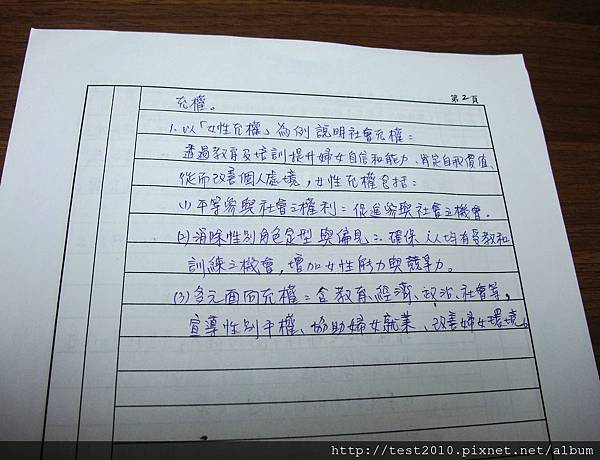 第2頁
充權。
1.以「女性充權」為例說明社會充權:
透過教育及培訓提升婦女自信和能力、肯定自我價值、
從而改善個人處境,女性充權包括:
(1)平等參與社會之權利:促進參與社會之機會。
(2)消除性別角色定型與偏見:確保 均有受教和
訓練之機會,增加女性能力與競爭力。
(3)多元面向充權:在教育、經濟、政治、社會等,
宣導性別平權、協助婦女就業、改善婦女環境。
http://test2010.pixnet.net/album